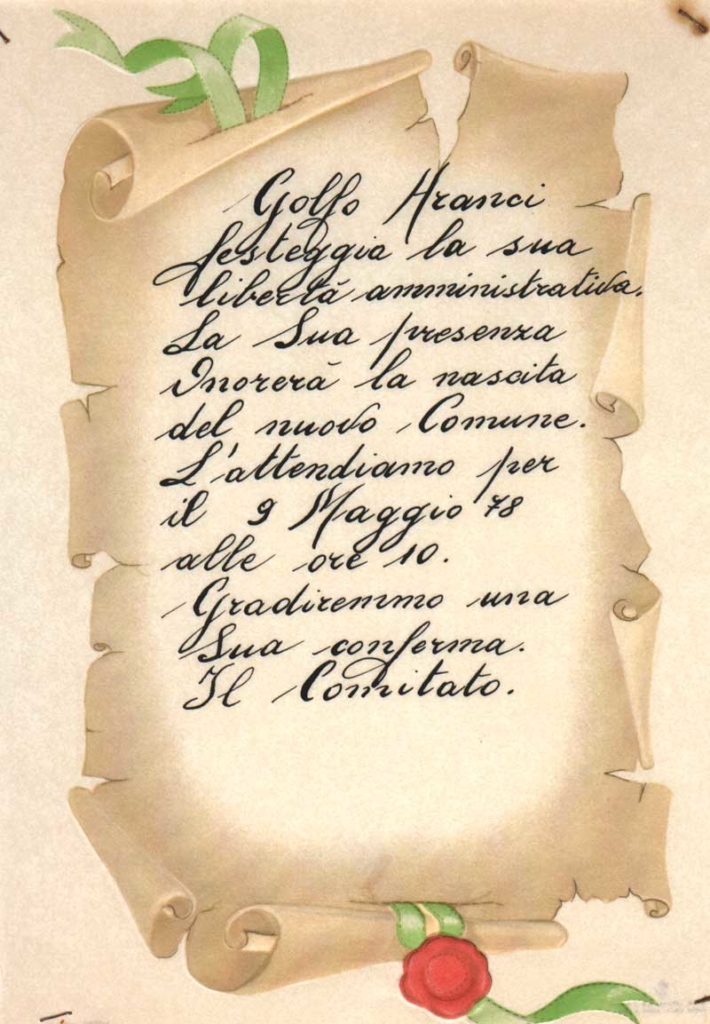 Golfo Aranci
festeggia la sua
libertà amministrativa.
La Sua presenza
Onorerà la nascita
del nuovo Comune.
L'attendiamo per
il 9 Maggio 78
alle ore 10.
Gradiremmo una
Sua conferma.
Il Comitato.